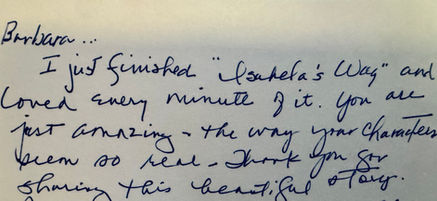 Barbara...
I just finished "Isabela's Way" and
loved every minute of it. You are
just amazing - the way your characters
seem so real - Thank you for
sharing this beautiful story.